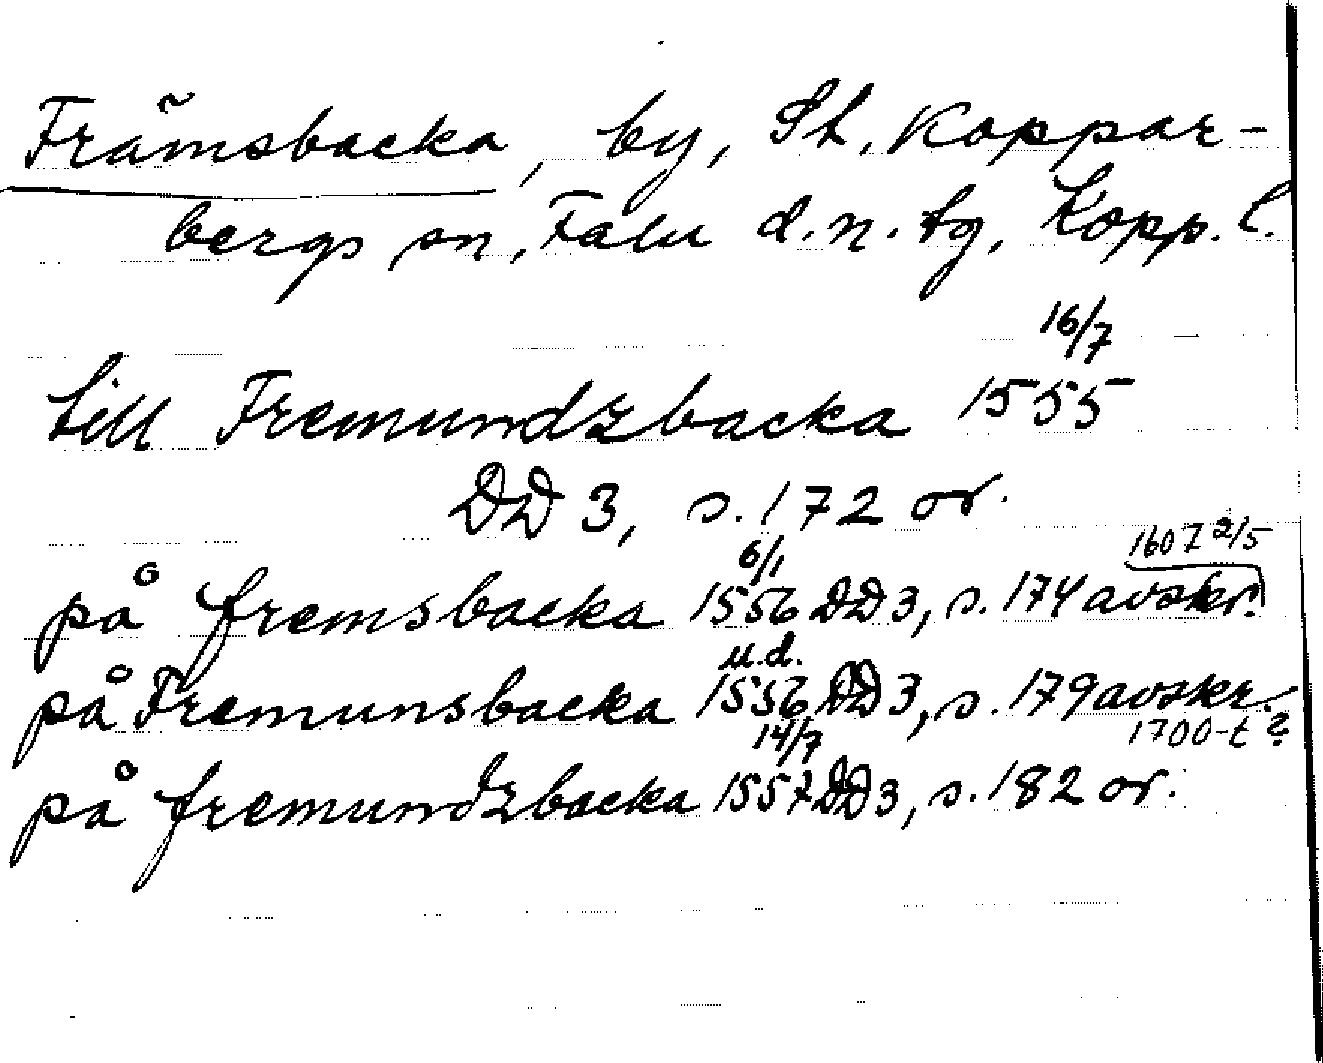 Främsbacka, by, St. Koppar-
bergs sn, Falu d.n. tg, Kopp. l.
till Fremundzbacka 1555 16/7
DD 3, s. 172 or.
på fremsbacka 1556 6/1 DD 3, s. 174 avskr. 1607 2/5
på Fremunsbacka 1556 u.d. DD 3, s. 179 avskr. 1700-t?
på fremundzbacka 1557 14/7 DD 3, s. 182 or.